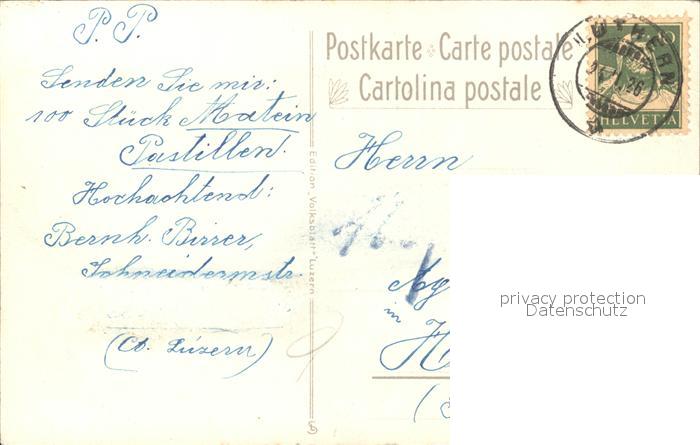 P. P.
Senden Sie mir:
100 Stück Matein
Pastillen.
Hochachtend:
Bernh. Birrer,
Schneidermstr.
(Ct. Luzern)
Edition „Volksblatt“ Luzern
Postkarte Carte postale
Cartolina postale
LUTHERN
HELVETIA
Herrn
in
privacy protection
Datenschutz